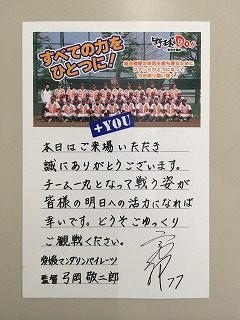 すべての力を
ひとつに!!
野球Do!!
+YOU
本日はご来場いただき
誠にありがとうございます。
チーム一丸となって戦う姿が
皆様の明日への活力になれば
幸いです。どうぞごゆっくり
ご観戦ください。
愛媛マンダリンパイレーツ
監督 弓岡 敬二郎
77